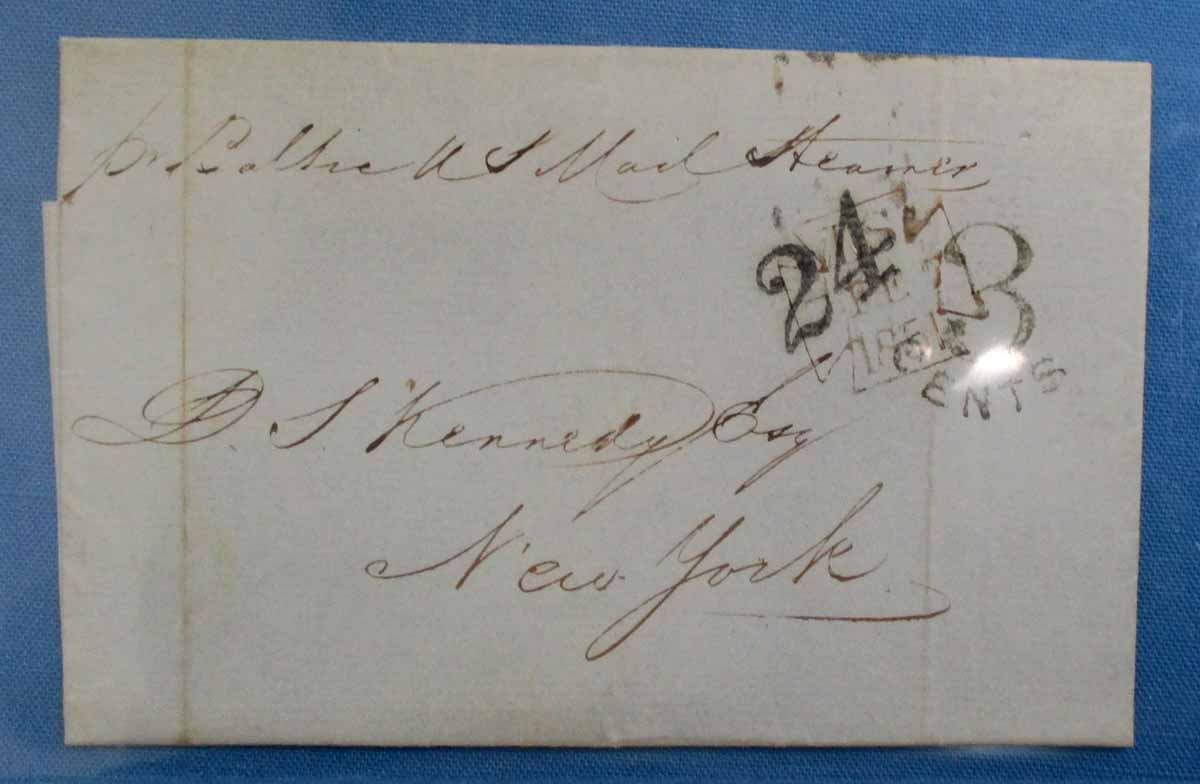 pr Baltic U S Mail Steamer
24
3
CENTS
D. S. Kennedy Esq
New York